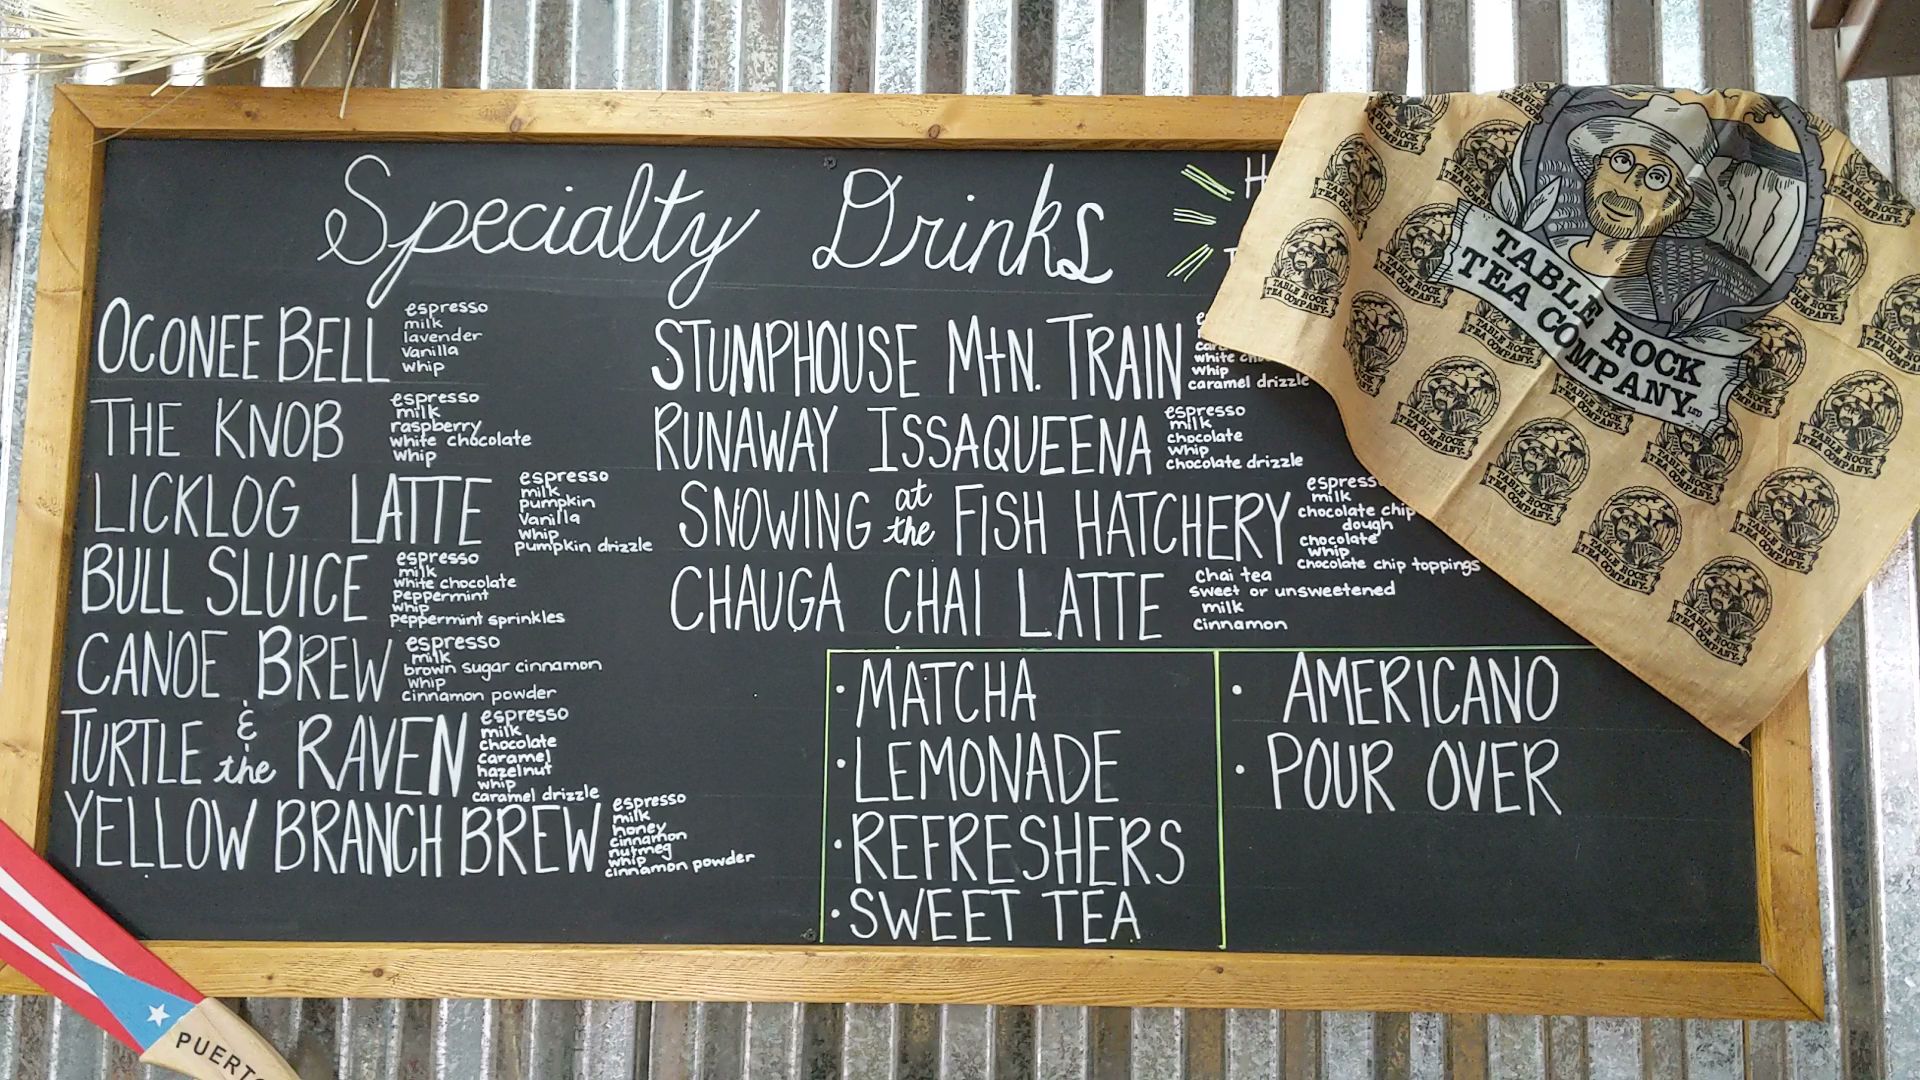 Specialty Drinks
OCONEE BELL
espresso
milk
lavender
vanilla
whip
THE KNOB
espresso
milk
raspberry
white chocolate
whip
LICKLOG LATTE
espresso
milk
pumpkin
vanilla
whip
pumpkin drizzle
BULL SLUICE
espresso
milk
white chocolate
peppermint
whip
peppermint sprinkles
CANOE BREW
espresso
milk
brown sugar cinnamon
whip
cinnamon powder
TURTLE & the RAVEN
espresso
milk
chocolate
caramel
hazelnut
whip
caramel drizzle
YELLOW BRANCH BREW
espresso
milk
honey
cinnamon
nutmeg
whip
cinnamon powder
STUMPHOUSE Mtn. TRAIN
white
whip
caramel drizzle
RUNAWAY ISSAQUEENA
espresso
milk
chocolate
whip
chocolate drizzle
SNOWING at the FISH HATCHERY
espress
milk
chocolate chip
dough
chocolate
whip
chocolate chip toppings
CHAUGA CHAI LATTE
chai tea
sweet or unsweetened
milk
cinnamon
· MATCHA
· LEMONADE
· REFRESHERS
· SWEET TEA
· AMERICANO
· POUR OVER
TABLE ROCK
TEA COMPANY LTD
PUERTO